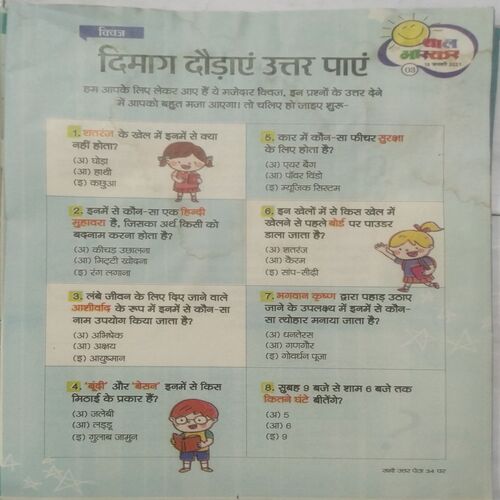 क्विज
बाल
भास्कर
03
15 जनवरी 2021
दिमाग दौड़ाएं उत्तर पाएं
हम आपके लिए लेकर आए हैं ये मजेदार क्विज, इन प्रश्नों के उत्तर देने
में आपको बहुत मजा आएगा। तो चलिए हो जाइए शुरू-
1. शतरंज के खेल में इनमें से क्या
नहीं होता?
(अ) घोड़ा
(आ) हाथी
(इ) कछुआ
2. इनमें से कौन-सा एक हिन्दी
मुहावरा है, जिसका अर्थ किसी को
बदनाम करना होता है?
(अ) कीचड़ उछालना
(आ) मिट्टी खोदना
(इ) रंग लगाना
3. लंबे जीवन के लिए दिए जाने वाले
आशीर्वाद के रूप में इनमें से कौन-सा
नाम उपयोग किया जाता है?
(अ) अभिषेक
(आ) अक्षय
(इ) आयुष्मान
4. 'बूंदी' और 'बेसन' इनमें से किस
मिठाई के प्रकार हैं?
(अ) जलेबी
(आ) लड्डू
(इ) गुलाब जामुन
5. कार में कौन-सा फीचर सुरक्षा
के लिए होता है?
(अ) एयर बैग
(आ) पॉवर विंडो
(इ) म्यूजिक सिस्टम
6. इन खेलों में से किस खेल में
खेलने से पहले बोर्ड पर पाउडर
डाला जाता है?
(अ) शतरंज
(आ) कैरम
(इ) सांप-सीढ़ी
7. भगवान कृष्ण द्वारा पहाड़ उठाए
जाने के उपलक्ष्य में इनमें से कौन-
सा त्योहार मनाया जाता है?
(अ) धनतेरस
(आ) गणगौर
(इ) गोवर्धन पूजा
8. सुबह 9 बजे से शाम 6 बजे तक
कितने घंटे बीतेंगे?
(अ) 5
(आ) 6
(इ) 9
सभी उत्तर पेज 34 पर